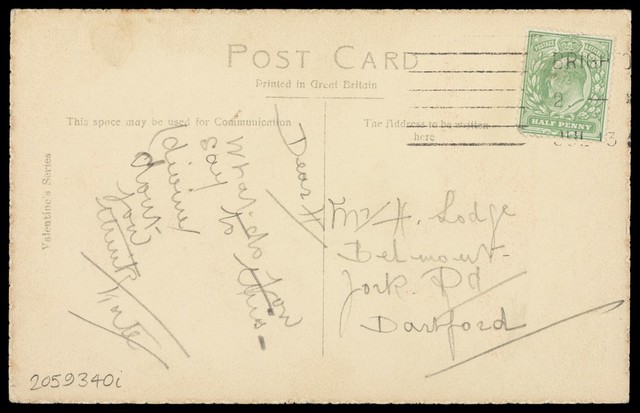 POST CARD
Printed in Great Britain
This space may be used for Communication
The Address to be written
here
Valentine's Series
BRIGH
HALF PENNY
Dear H
What do you
say to this -
(divine)
dont
you
think
M/ H. Lodge
Belmount-
York. Rd
Dartford
2059340i